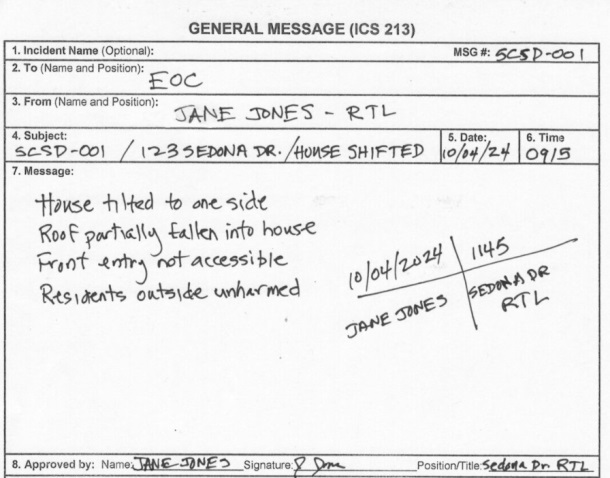 GENERAL MESSAGE (ICS 213)
1. Incident Name (Optional): MSG #: SCSD-001
2. To (Name and Position): EOC
3. From (Name and Position): JANE JONES - RTL
4. Subject: SCSD-001 / 123 SEDONA DR. / HOUSE SHIFTED
5. Date: 10/04/24
6. Time 0915
7. Message:
House tilted to one side
Roof partially fallen into house
Front entry not accessible
Residents outside unharmed
10/04/2024 1145
JANE JONES SEDONA DR
RTL
8. Approved by: Name: JANE JONES Signature: Position/Title: Sedona Dr RTL